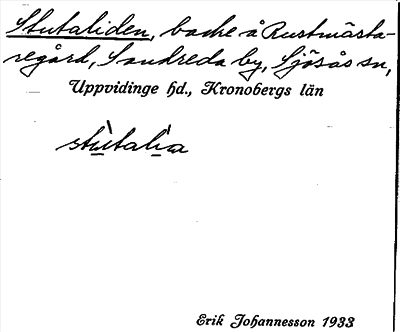 Stutaliden, backe å Rustmästa-
regård, Sandreda by, Sjösås sn,
Uppvidinge hd., Kronobergs län
stùtalìa
Erik Johannesson 1933